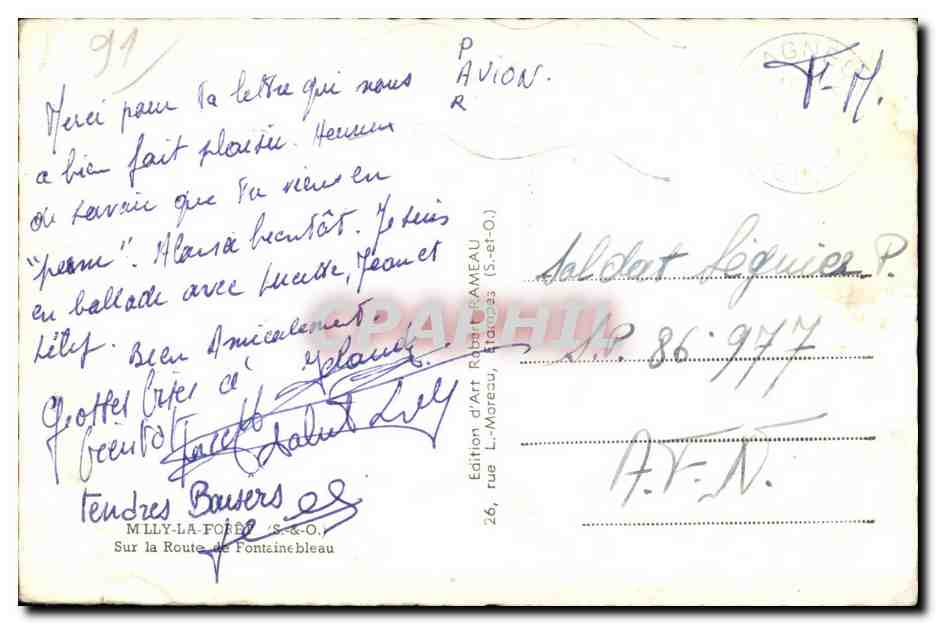 91
PAR AVION.
F-M.
Merci pour ta lettre qui nous
a bien fait plaisir. Heureux
de savoir que tu viens en
"perm". A bientôt. Je suis
en ballade avec Lucette, Jean et
Bien Amicalement.
Grosses bises à
bientôt
Salut
Tendres Baisers
MILLY-LA-FORÊT (S.-&-O.)
Sur la Route de Fontainebleau
Edition d'Art Robert RAMEAU
26, rue L.-Moreau, Etampes (S.-et-O.)
CPARPHIL
Soldat Léguier P.
S.P. 86·977
A.F.N.